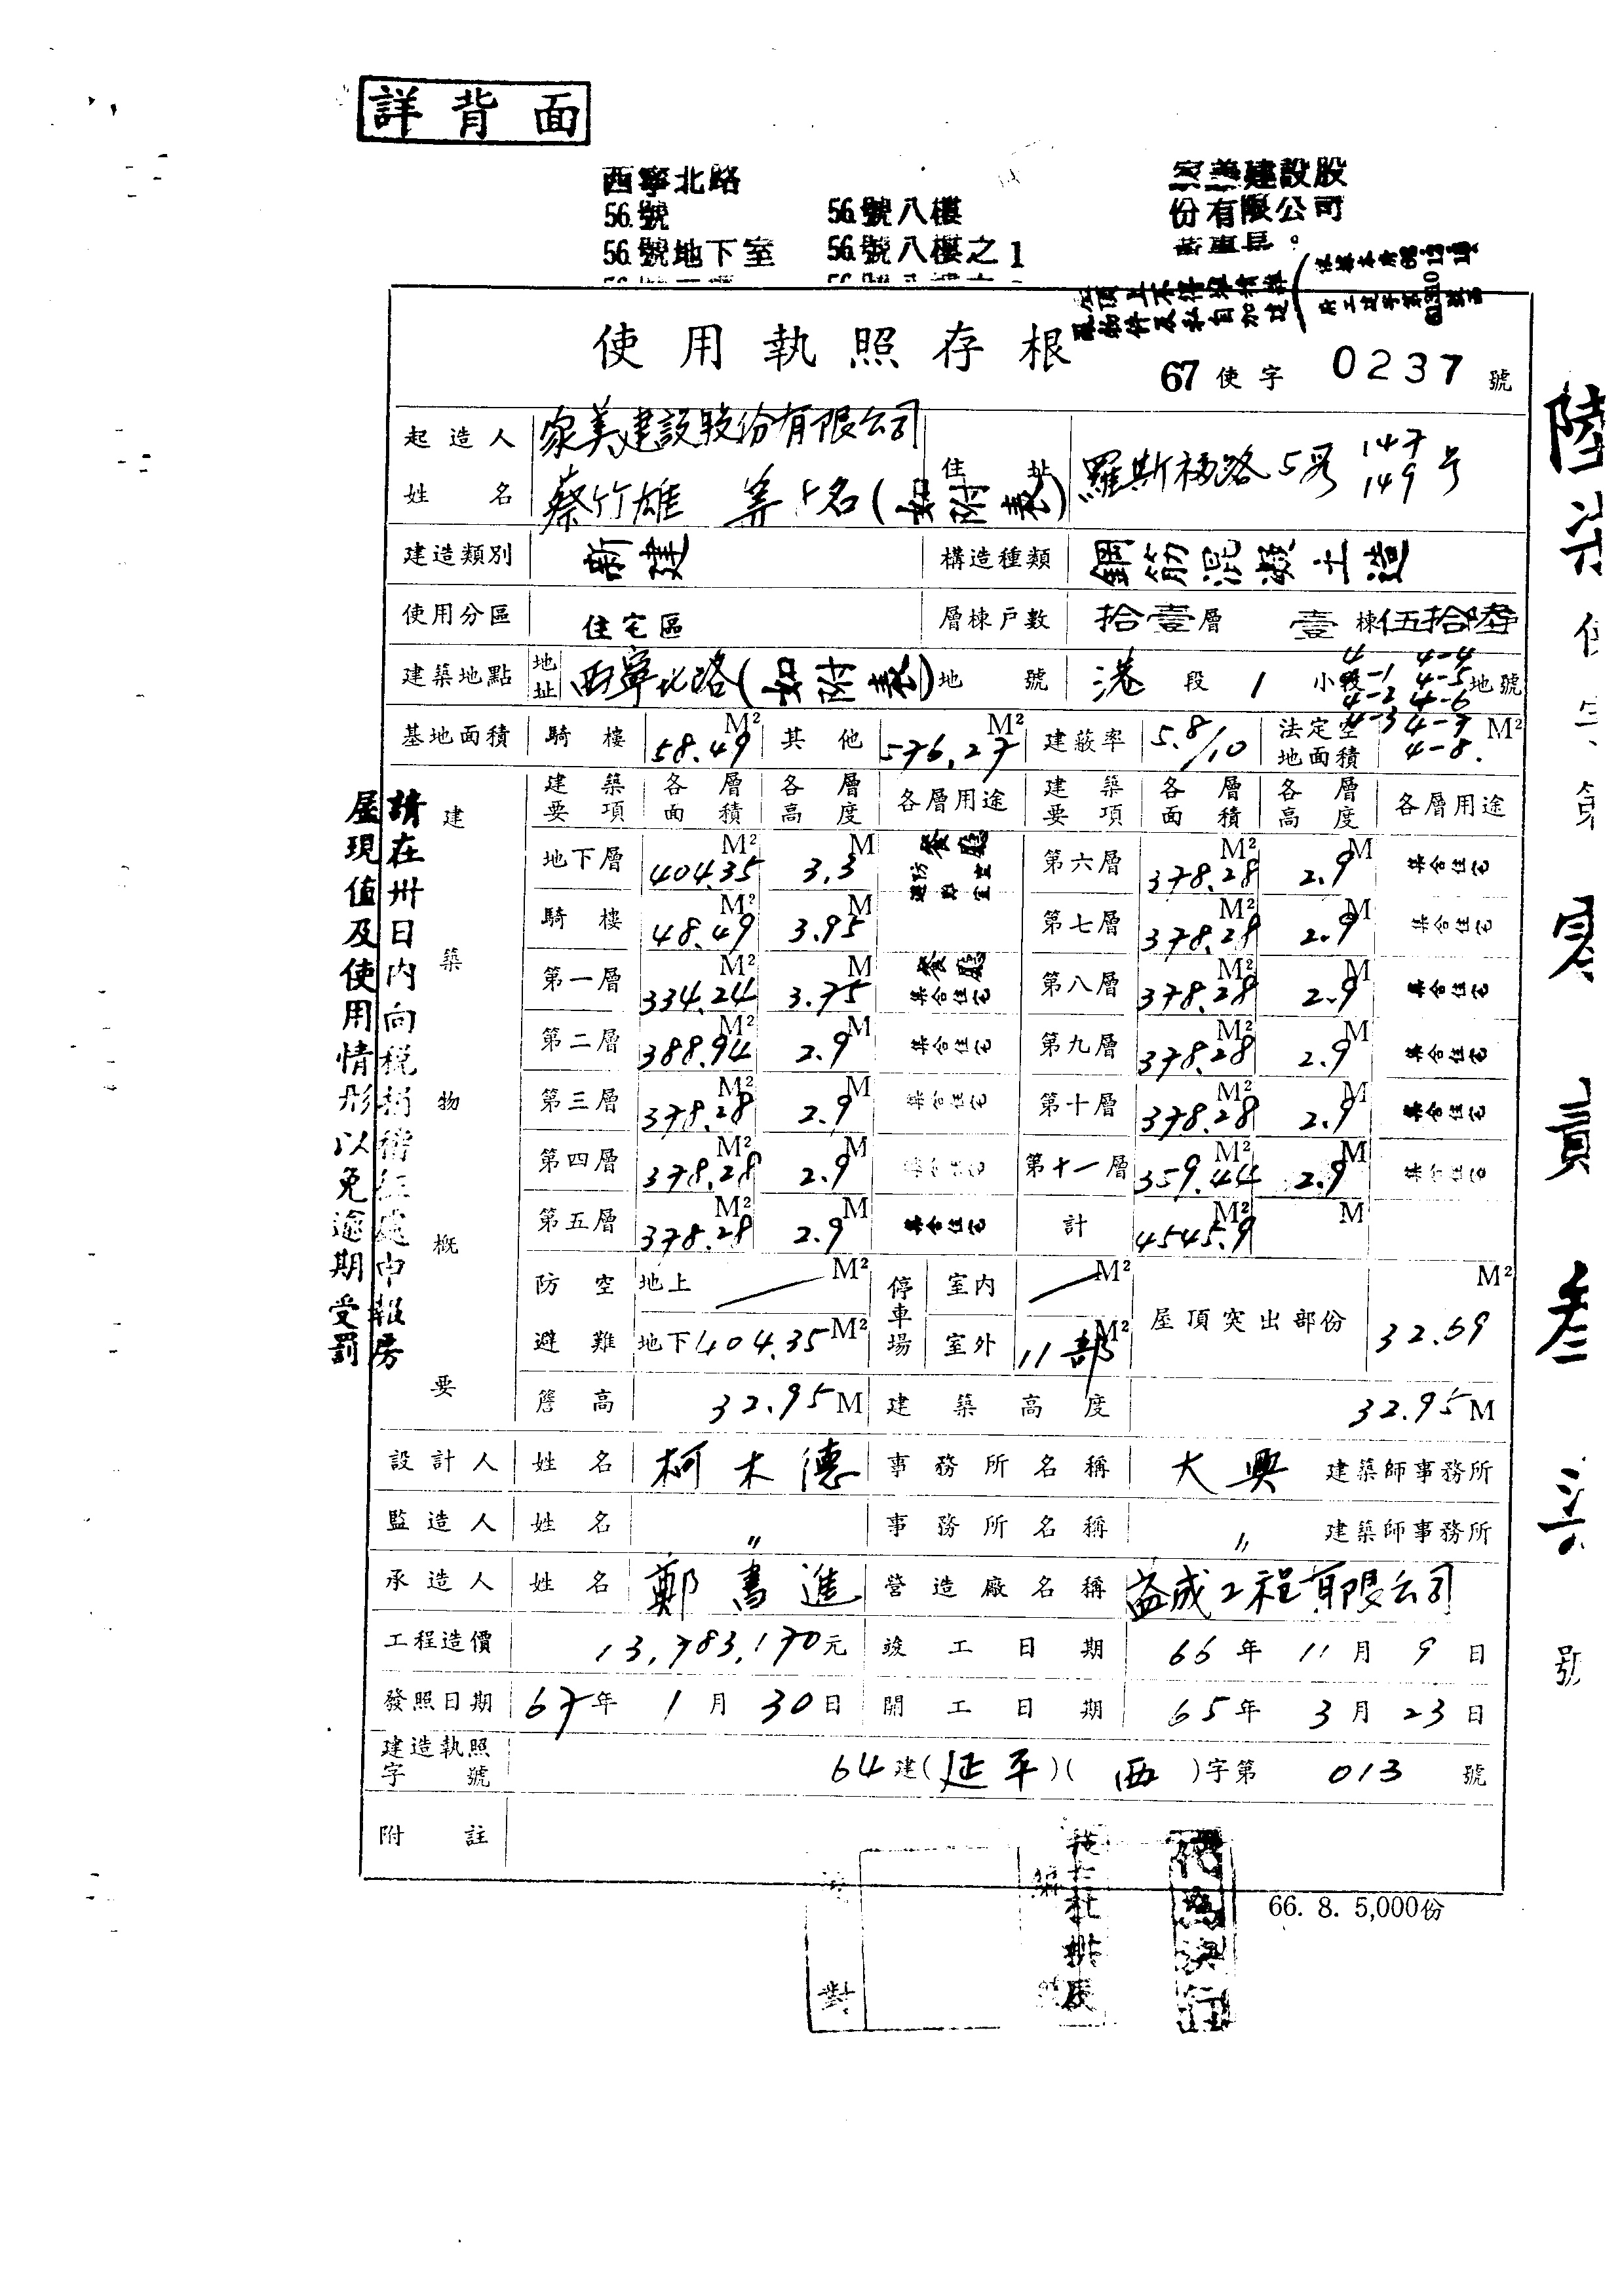 詳背面
西寧北路
56號 56號八樓
56號地下室 56號八樓之1
家美建設股
份有限公司
使用執照存根
67 使字 0237 號
起造人姓名 家美建設股份有限公司 蔡竹雄 等 名(如附表) 住址 羅斯福路5段 147 149 号
建造類別 新建 構造種類 鋼筋混凝土造
使用分區 住宅區 層棟戶數 拾壹層 壹棟伍拾陸
建築地點 地址 西寧北路(如附表) 地號 港 段 1 小段 4 4-1 4-2 4-3 4-4 4-5 4-6 4-7 4-8. 地號
基地面積 騎樓 58.49 M² 其他 576.27 M² 建蔽率 5.8/10 法定空地面積 M²
建築物概要
建築要項 各層面積 各層高度 各層用途 建築要項 各層面積 各層高度 各層用途
地下層 404.35 M² 3.3 M 餐廳 防空避難室 第六層 378.28 M² 2.9 M 集合住宅
騎樓 48.49 M² 3.95 M 第七層 378.28 M² 2.9 M 集合住宅
第一層 334.24 M² 3.75 M 餐廳 集合住宅 第八層 378.28 M² 2.9 M 集合住宅
第二層 388.94 M² 2.9 M 集合住宅 第九層 378.28 M² 2.9 M 集合住宅
第三層 378.28 M² 2.9 M 集合住宅 第十層 378.28 M² 2.9 M 集合住宅
第四層 378.28 M² 2.9 M 第十一層 359.44 M² 2.9 M 集合住宅
第五層 378.28 M² 2.9 M 集合住宅 計 4545.9 M² M
防空避難 地上 M² 停車場 室內 M² 屋頂突出部份 32.59 M²
地下 404.35 M² 室外 11部 M²
簷高 32.95 M 建築高度 32.95 M
設計人 姓名 柯木德 事務所名稱 大興 建築師事務所
監造人 姓名 〃 事務所名稱 〃 建築師事務所
承造人 姓名 鄭書進 營造廠名稱 益成工程有限公司
工程造價 13,783,170元 竣工日期 66年 11月 9日
發照日期 67年 1月 30日 開工日期 65年 3月 23日
建造執照字號 64建(延平)(西)字第 013 號
附註
66. 8. 5,000份
請在卅日內向稅捐稽征處申報房
屋現值及使用情形以免逾期受罰
對
代為決行
號